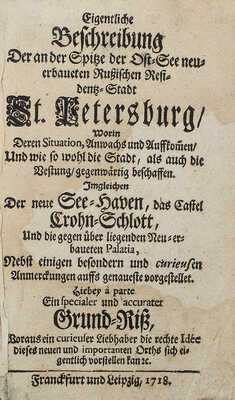 Eigentliche
Beschreibung
Der an der Spitze der Ost-See neu-
erbaueten Rußischen Resi-
dentz-Stadt
St. Petersburg/
Worin
Deren Situation, Anwachs und Auffkom̃en/
Und wie so wohl die Stadt, als auch die
Vestung/ gegenwärtig beschaffen.
Imgleichen
Der neue See-Haven, das Castel
Crohn-Schlott,
Und die gegen über liegenden Neu-er-
baueten Palatia,
Nebst einigen besondern und curieusen
Anmerckungen auffs genaueste vorgestellet.
Hiebey â parte
Ein specialer und accurater
Grund-Riß,
Voraus ein curieuser Liebhaber die rechte Idée
dieses neuen und importanten Orths sich ei-
gentlich vorstellen kan ꝛc.
Franckfurt und Leipzig, 1718.